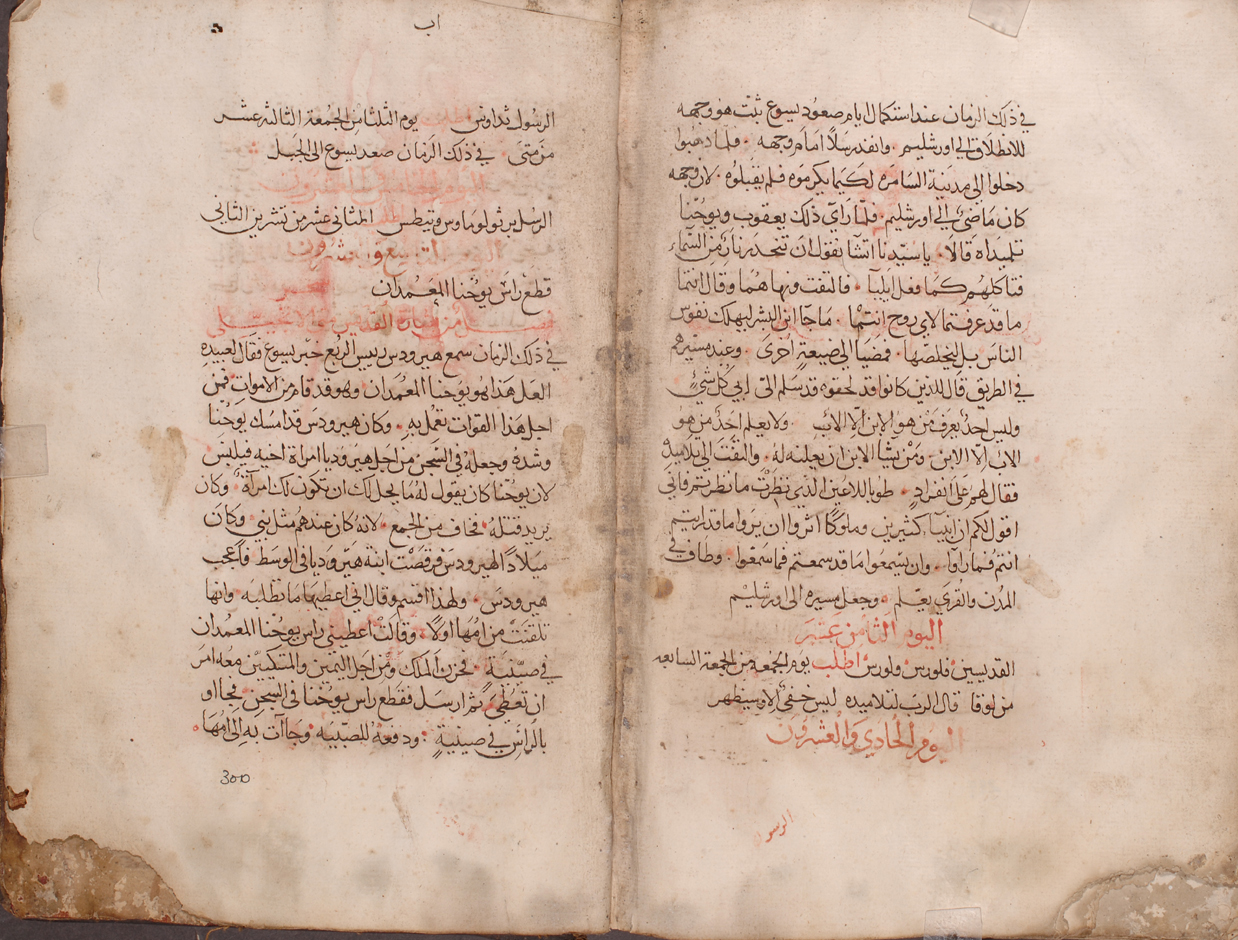 في ذلك الزمان عند استكمال ايام صعود يسوع ثبت هو وجهه
للانطلاق الى اورشليم • وانفد رسلاً امام وجهه • فلما ذهبوا
دخلوا الى مدينة السامره لكيما يكرموه فلم يقبلوه • لان وجهه
كان ماضي الى اورشليم • فلما راي ذلك يعقوب ويوحنا
تلميداه قالا • يا سيدنا اتشا نقول ان تنحدر نار من السماء
فتاكلهم كما فعل ايليا • فالتفت ونهاهما وقال انتما
ما قد عرفتما لاي روح انتما • ما جا ابن البشر ليهلك نفوس
الناس بل ليخلصها • فمضيا الى ضيعة اخرى • وعند مسيرهم
في الطريق قال للذين كانوا قد لحقوه قد سلم الي ابي كل شيٍ
وليس احد يعرف من هو الابن الا الاب • ولا يعلم احد من هو
الاب الا الابن • ومن يشا الابن ان يعلنه له • والتفت الى تلاميده
فقال لهم على انفراد • طوبا للاعين الذي نظرت ما نظرتم فاني
اقول لكم ان انبيا كثيرين وملوكا اثروا ان يروا ما قد رايتم
انتم فما راوا • وان يسمعوا ما قد سمعتم فما سمعوا • وطاف في
المدن والقرى يعلم • وجعل مسيره الى اورشليم
اليوم الثامن عشر
القديسين فلورس ولورس اطلب يوم الجمعه من الجمعة السابعه
من لوقا قال الرب لتلاميده ليس خفي الا وسيظهر
اليوم الحادي والعشرون
الرسو
اب
الرسول تداوس اطلب يوم الثلثا من الجمعة الثالثه عشر
من متى • في ذلك الزمان صعد يسوع الى الجبل
الرسل برثولوماوس وتيطس الثاني عشر من تشرين الثاني
اليوم التاسع والعشرون
قطع راس يوحنا المعمدان
فصل من بشارة القديس الانجيلي
في ذلك الزمان سمع هيرودس رييس الربع خبر يسوع فقال لعبيده
لعل هذا هو يوحنا المعمدان • وهو قد قام من الاموات • فمن
اجل هذا القوات تعمل به • وكان هيرودس قد امسك يوحنا
وشده وجعله في السجن من اجل هيروديا امراة اخيه فيلبس
لان يوحنا كان يقول له ما يحل لك ان تكون لك امراة • وكان
يريد قتله • فخاف من الجمع • لانه كان عندهم مثل نبي • وكان
ميلاداً لهيرودس فرقصت ابنة هيروديا في الوسط • فاعجب
هيرودس • ولهذا اقسم وقال اني اعطيها ما تطلبه • وانها
تلقنت من امها اولاً • وقالت اعطيني راس يوحنا المعمدان
في صينية • فحزن الملك ومن اجل اليمين والمتكيين معه امر
ان تعطي • ثم ارسل فقطع راس يوحنا في السجن • فجااو
بالراس في صينية • ودفعه للصبيه • وجاات به الى امها •
300